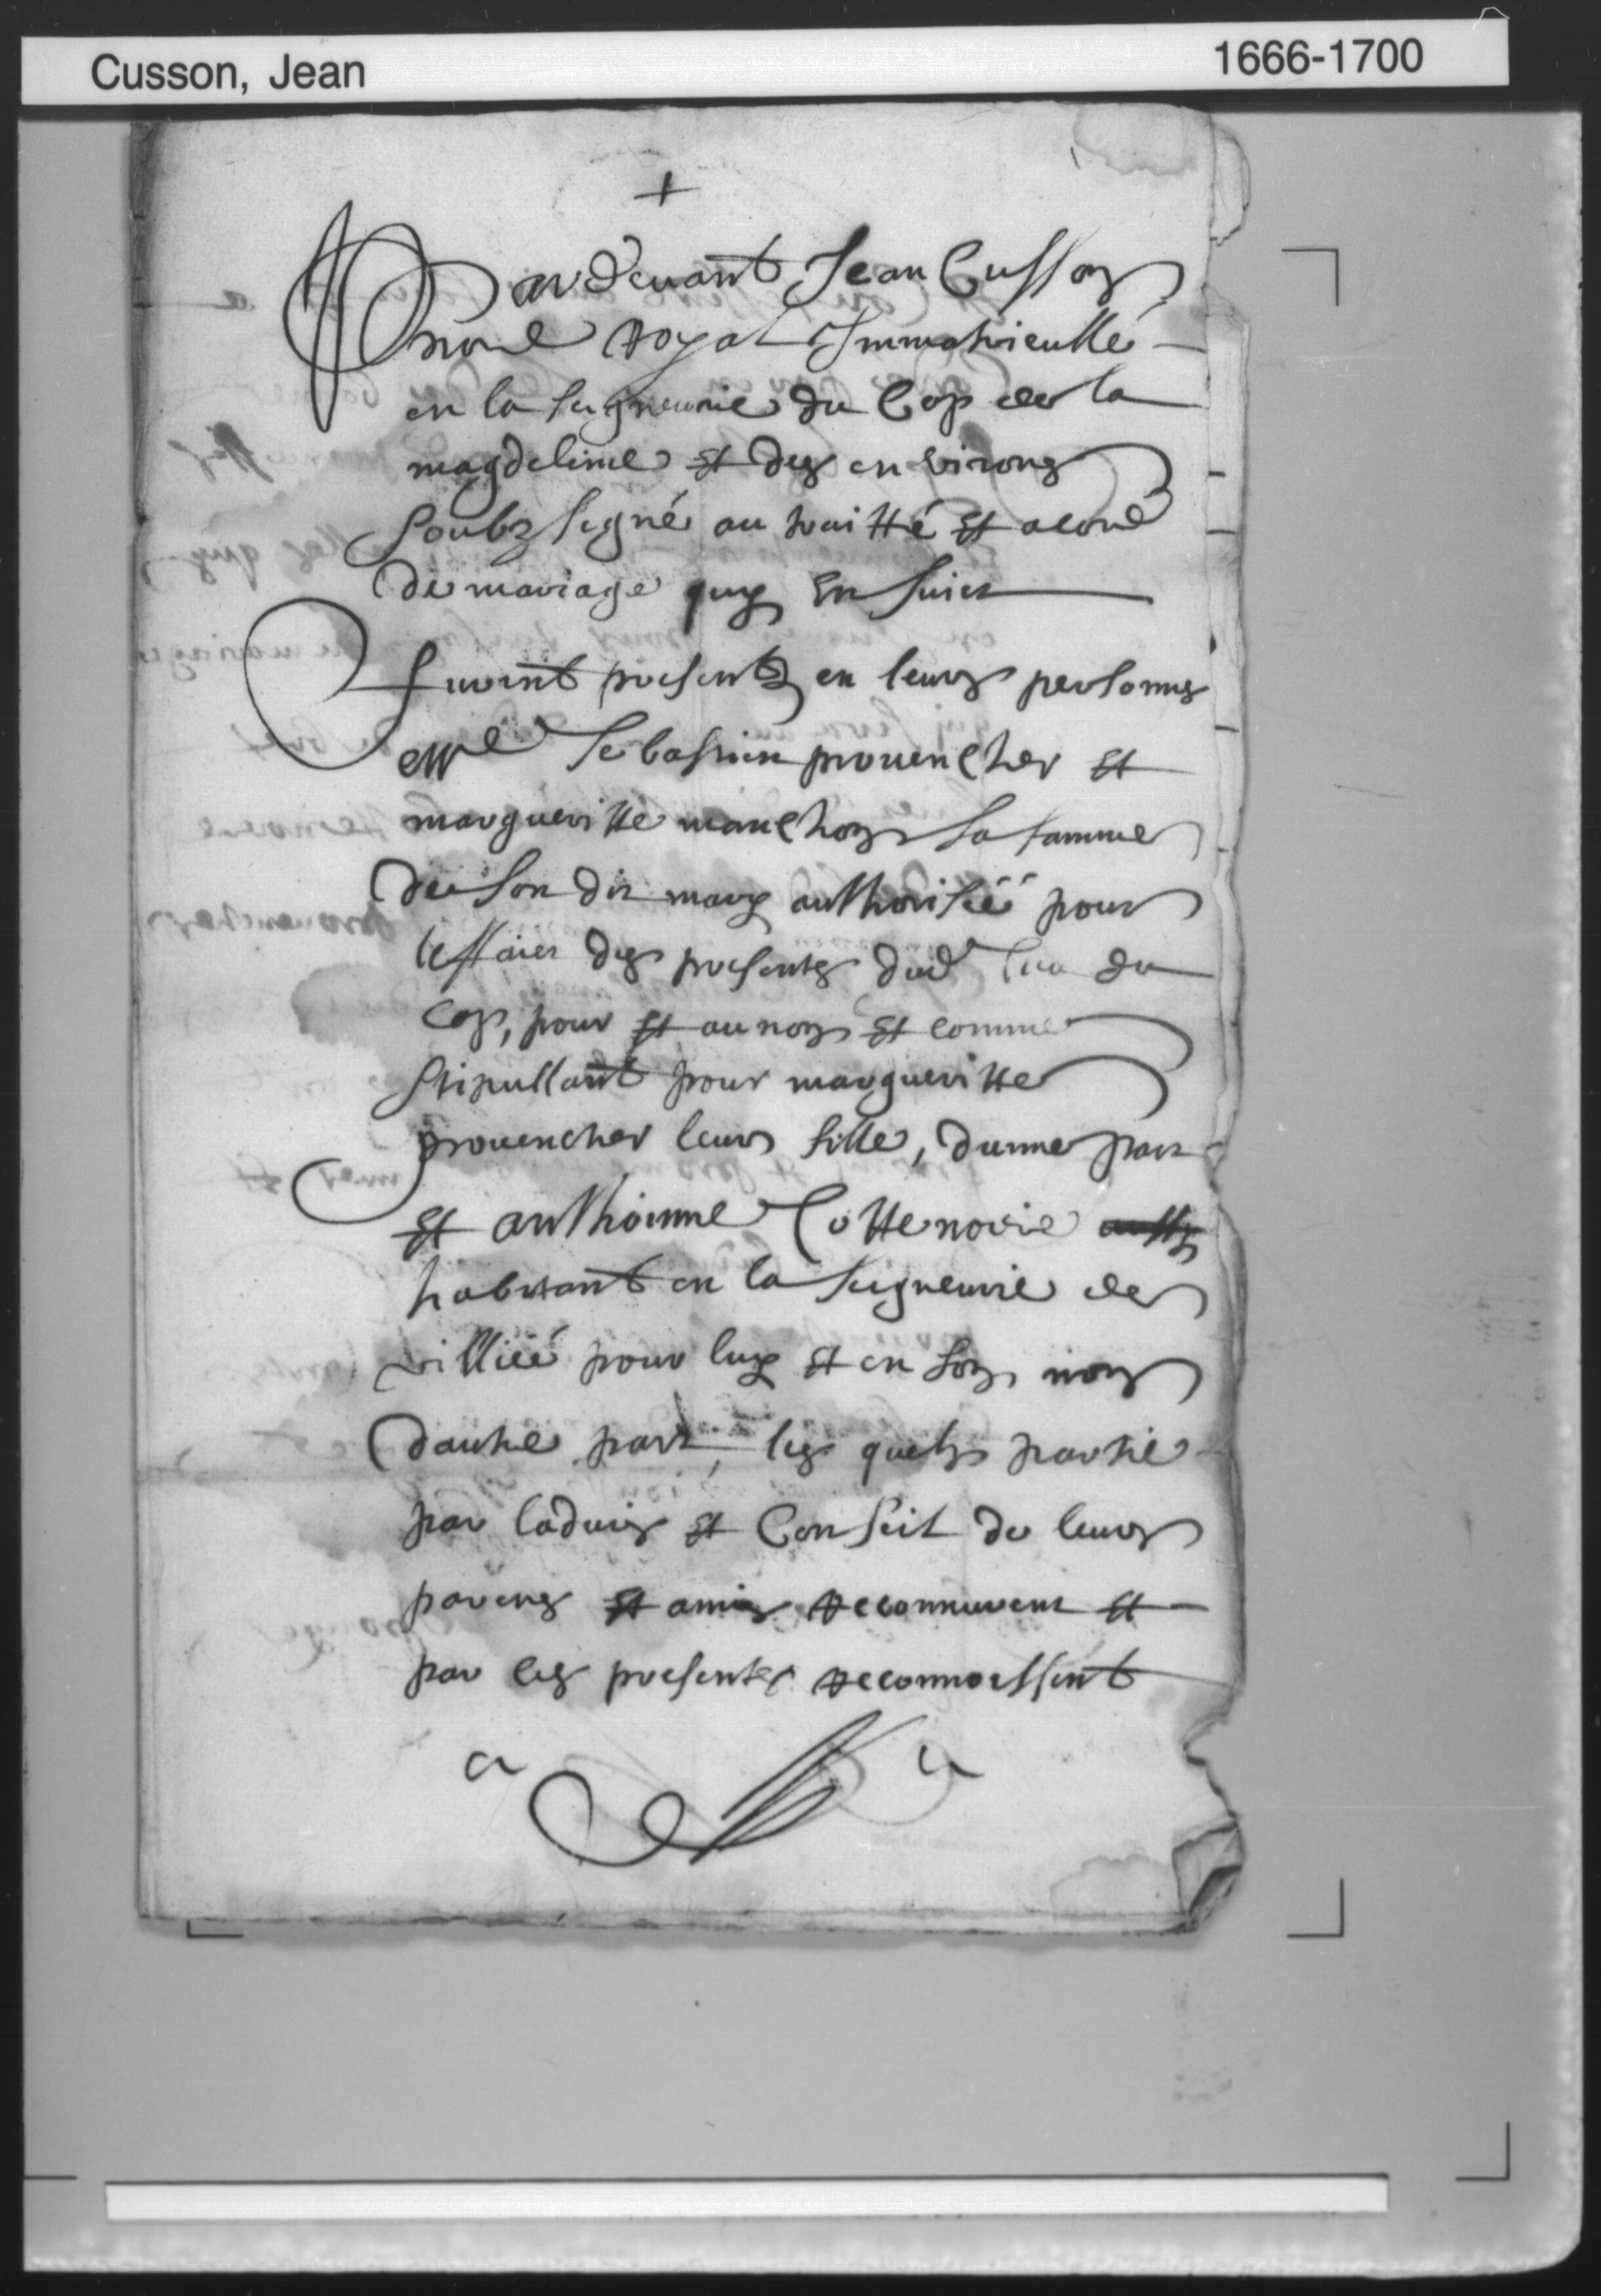 Cusson, Jean
1666-1700
+
Pardevant Jean Cusson
nore royal Immatricullé
en la seigneurie du Cap de la
magdeleine et des environs
soubz signé au traitté et acord
de mariage quy Ensuict
furent presents en leurs personnes
Sebastien prouencher et
margueritte manchon sa famme
de son dit mary authorisée pour
leffaict des presentes dud lieu du
Cap, pour et au nom et comme
stipullant pour margueritte
prouencher leur fille, dunne part
et anthoinne Cottenoire aussy
habitant en la seigneurie de
villiée pour luy et en son nom
dautre part, les quels partie
par ladvis et Conseil de leurs
parens et amis reconnurent et
par les presentes reconnoissent